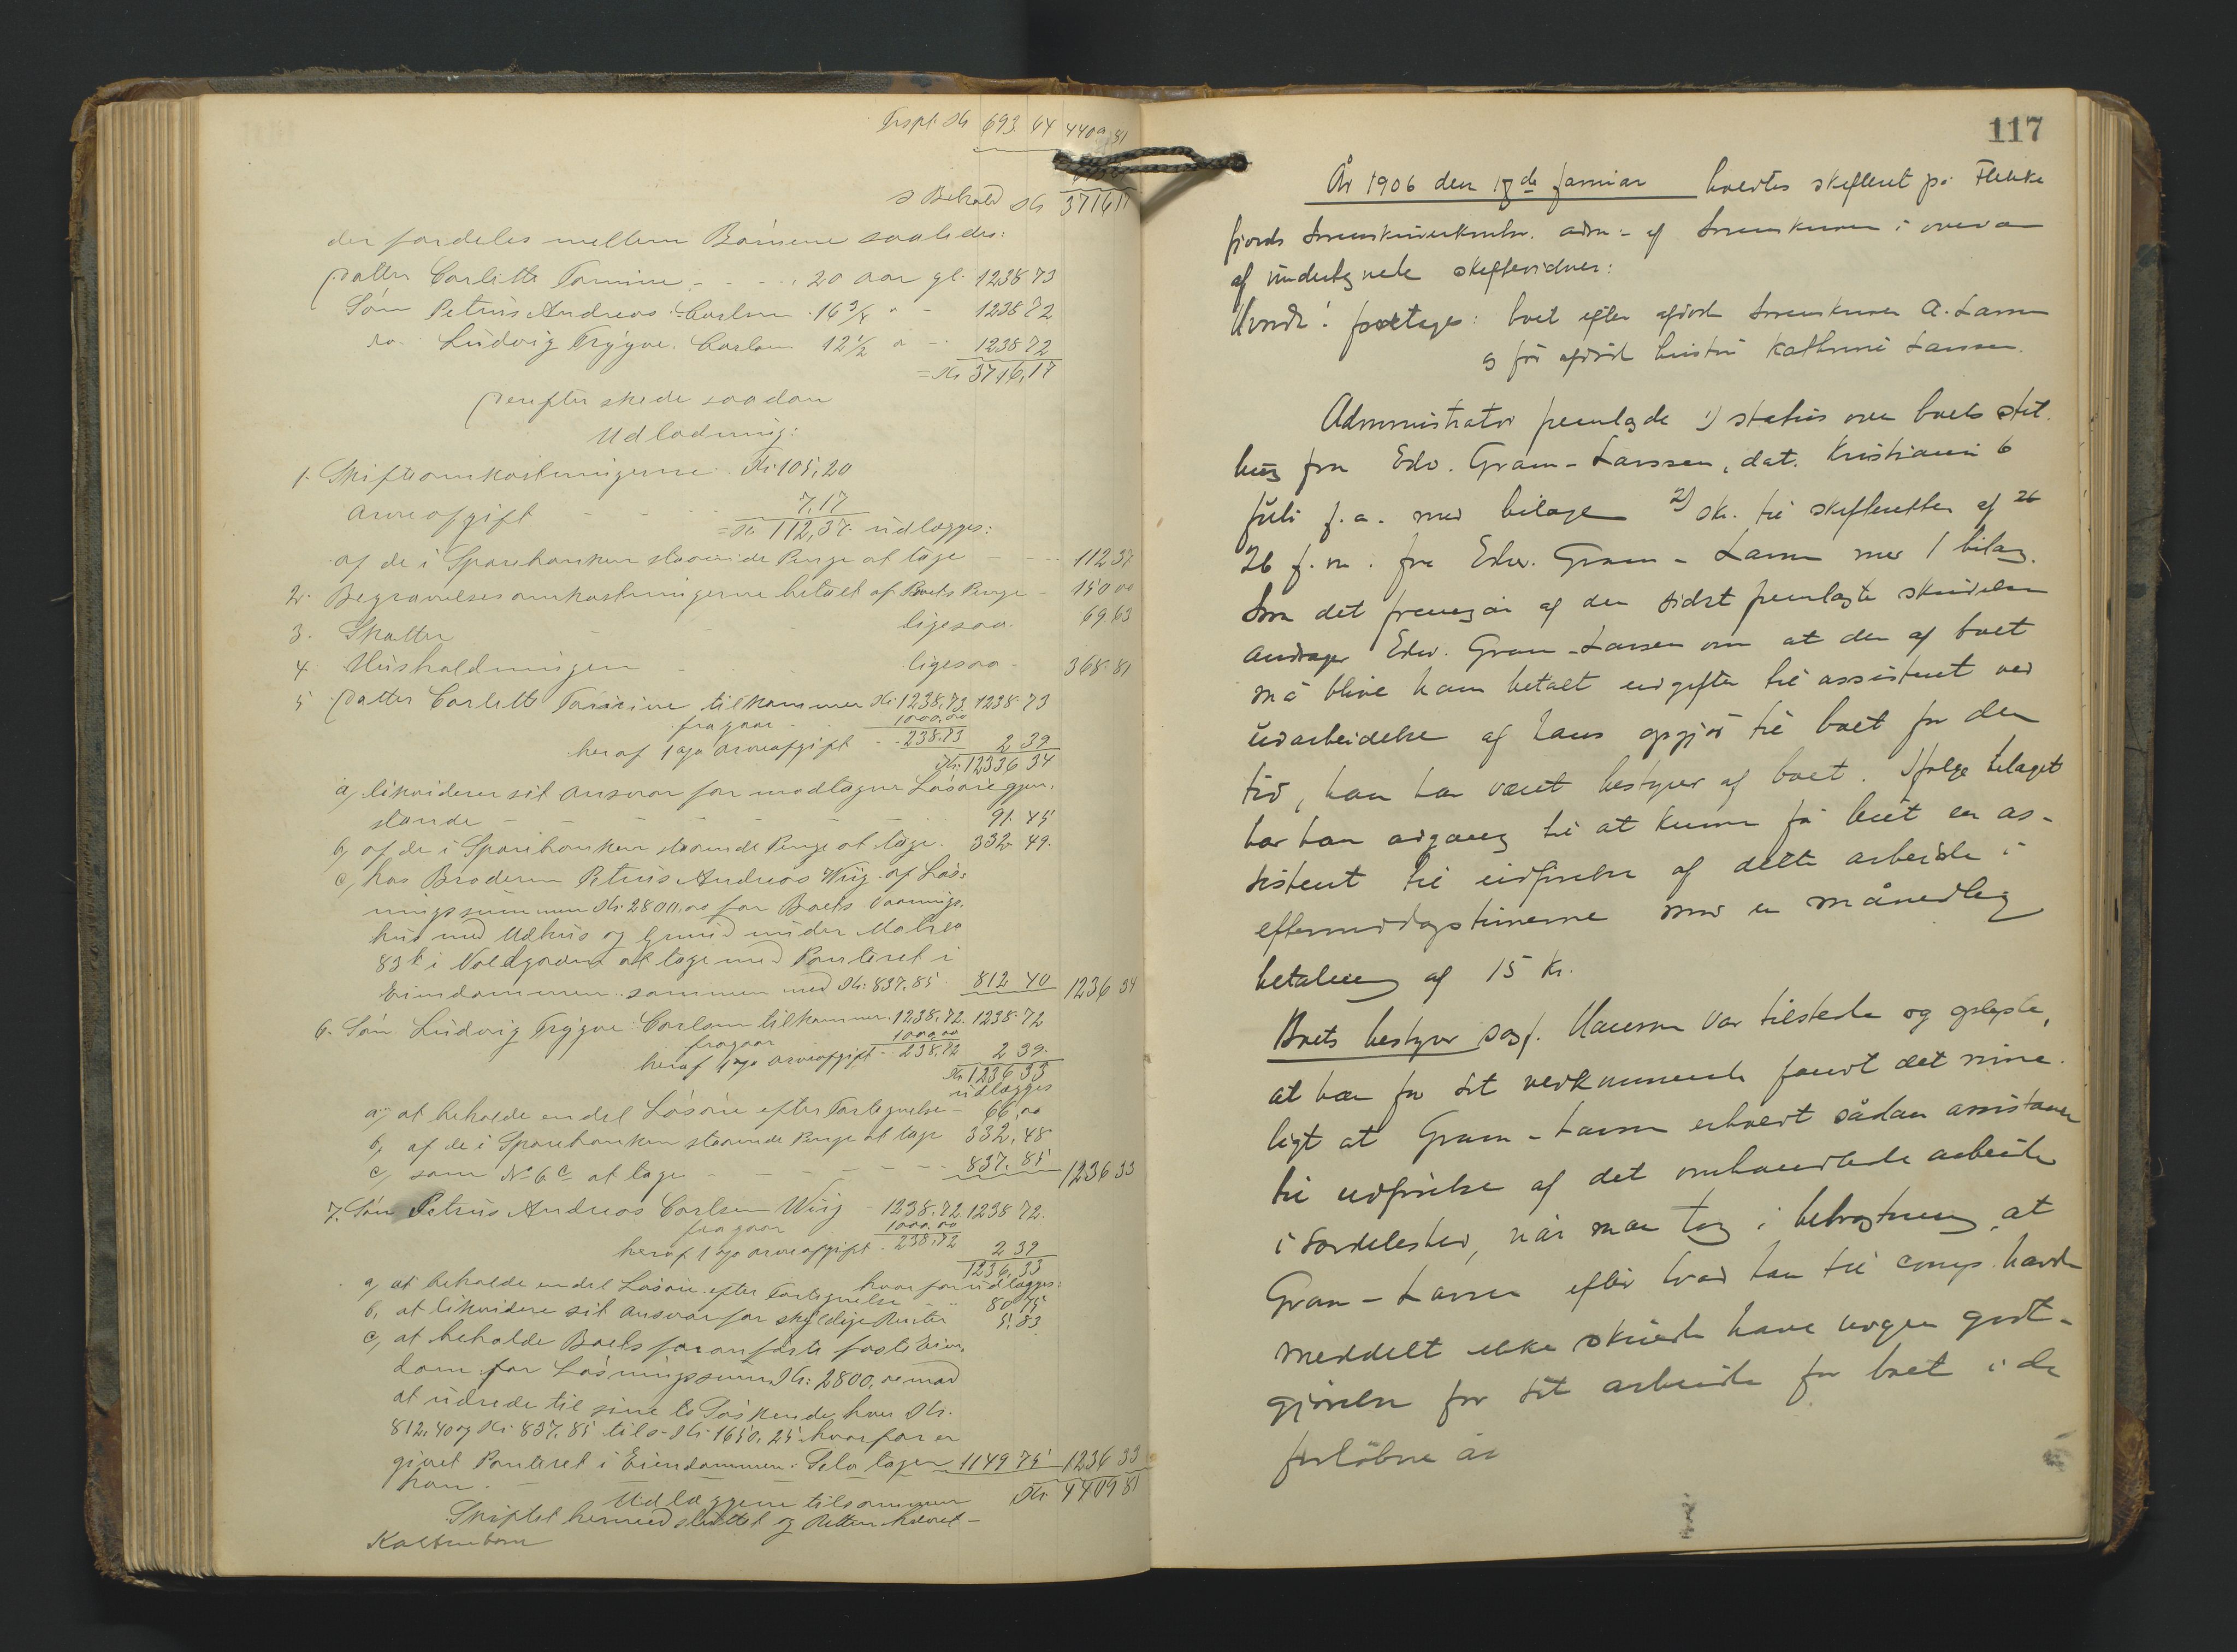 Trspt. Kr 693 64 4409 81
s Behold Kr 3716 17
der fordeles mellem Børnene saaledes:
Datter Carlette Tomine - - - 20 aar gl. 1238 73
Søn Petrus Andreas Carlsen 16 3/4 " - 1238 72
do. Ludvig Trygve Carlsen 12 1/2 " - 1238 72
= Kr 3716,17
Derefter skede saadan
Udlodning:
1. Skifteomkostningerne Kr 105,20
Arveafgift - - - 7,17
= Kr 112,37 udlægges:
af de i Sparebanken staaende Penge at tage - - - 112 37
2. Begravelsesomkostningerne betalt af Boets Penge - 150 00
3. Skatter - - ligesaa. 69 63
4. Husholdningen - ligesaa - 368 81
5 Datter Carlette Tomine tilkommer Kr 1238,73 1238 73
fragaar - 1000,00
heraf 1 % Arveafgift - 238,73 2 39
Kr. 12336 34
a, likviderer sit Ansvar for modtagne Løsøregjen-
stande - - - - - 91. 45
b, af de i Sparebanken staaende Penge at tage. 332 49.
c, hos Broderen Petrus Andreas Wiig af Løs-
ningssummen Kr. 2800,00 for Boets Vaanings-
hus med Udhus og Grund under Matr. No
83 b i Voldgaden at tage med Panteret i
Eiendommen sammen med Kr: 837,85 812 40 1236 34
6. Søn Ludvig Trygve Carlsen tilkommer 1238,72. 1238 72
fragaar 1000,00
heraf 1 % Arveafgift - 238,72 2 39.
Kr 1236 33
udlægges
a, at beholde endel Løsøre efter Fortegnelse - 66,00
b, af de i Sparebanken staaende Penge at tage 332,48
c, som No 6 c at tage - - - - - 837. 85 1236 33
7. Søn Petrus Andreas Carlsen Wiig - 1238,72. 1238 72.
fragaar 1000,00
heraf 1 % Arveafgift - 238,72 2 39
1236,33
hvorfor udlægges:
a, at beholde endel Løsøre efter Fortegnelse - - 80 75
b, at likvidere sit Ansvar for skyldige Renter 5,83
c, at beholde Boets foranførte faste Eien-
dom for Løsningssum Kr: 2800,00 mod
at udrede til sine to Søskende hver Kr.
812,40 og Kr. 837,85 tils. Kr. 1650,25 hvorfor er
givet Panteret i Eiendommen. Selv tager 1149 75 1236 33
han - - - - -
Udlæggene tilsammen Kr. 4409 81
Skiftet hermed sluttet og Retten hævet -
Kaltenborn
117
År 1906 den 17de januar holdtes skifteret på Flekke
fjords sorenskriverkontor. adm: af sorenskriveren i overvær
af undertegnede skiftevidner:
Hvorda: foretages: boet efter afdøde sorenskriver A. Larssen
og før afdøde hustru Kathrine Larssen.
Administrator fremlagde 1) status over boets stil-
ling fra Edv. Gram-Larssen, dat. Kristiania 6
juli f.a. med bilage 2) skr. til skifteretten af 26
26 f.m. fra Edv. Gram-Larssen med 1 bilag.
Som det fremgår af den sidst fremlagte skrivelse
andrager Edv. Gram-Larssen om at der af boet
må blive ham betalt udgifter til assistent ved
udarbeidelse af hans opgjør til boet for den
tid, han har været bestyrer af boet. Ifølge bilaget
har han adgang til at kunne få leiet en as-
sistent til udførelse af dette arbeide i
eftermiddagstimerne mod en månedlig
betaling af 15 kr.
Boets bestyrer sagf. Hanssen var tilstede og oplyste,
at han for sit vedkommende fandt det rime-
ligt at Gram-Larssen erholdt sådan assistance
til udførelse af det omhandlede arbeide
i særdeleshed, når man tog i betragtning, at
Gram-Larssen efter hvad han til comp. havde
meddelt ikke skulde have nogen godt-
gjørelse for sit arbeide for boet i de
forløbne år